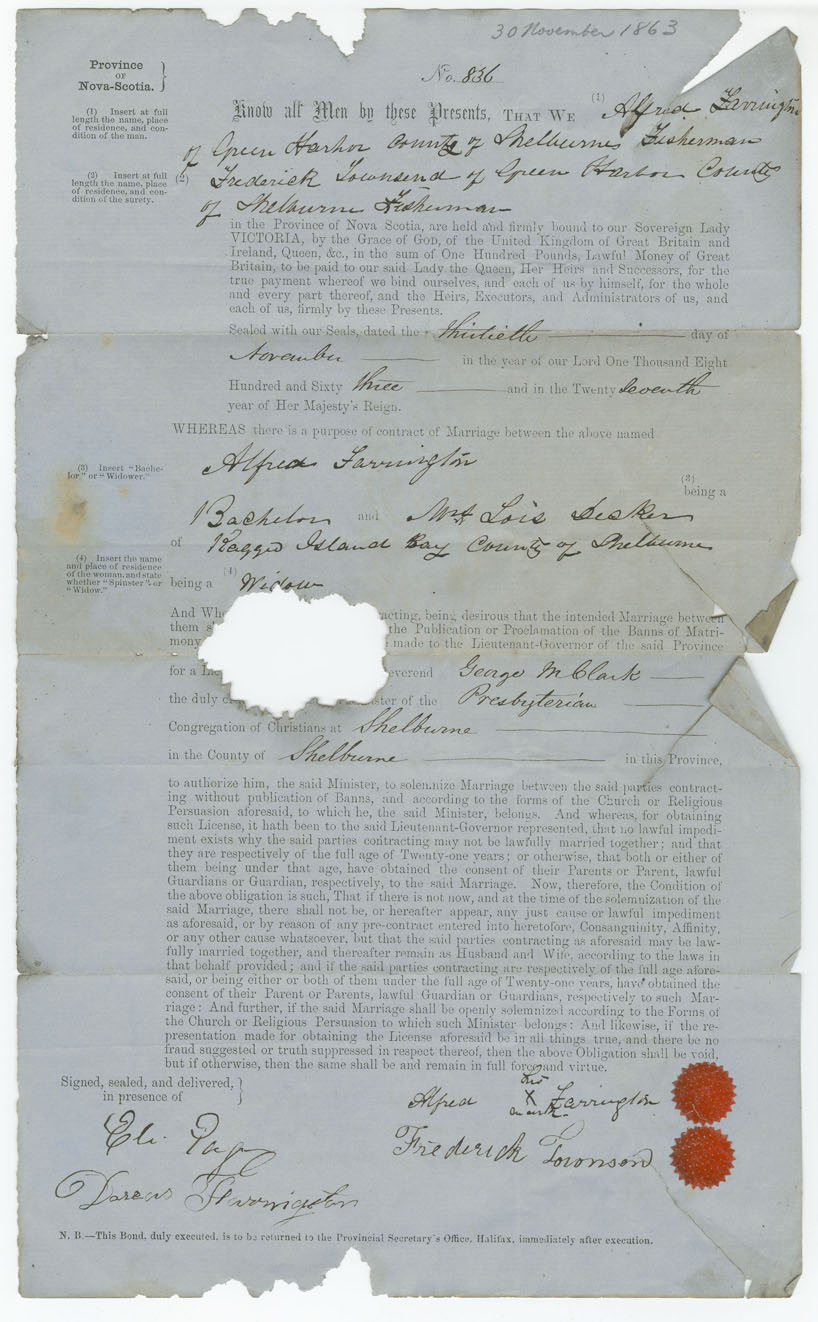 30 November 1863
Province
OF
Nova-Scotia.
No. 836
(1) Insert at full
length the name, place
of residence, and con-
dition of the man.
Know all Men by these Presents, THAT WE (1) Alfred Farrington
of Green Harbor County of Shelburne Fisherman
(2) Insert at full
length the name, place
of residence, and con-
dition of the surety.
(2) Frederick Townsend of Green Harbor County
of Shelburne Fisherman
in the Province of Nova Scotia, are held and firmly bound to our Sovereign Lady
VICTORIA, by the Grace of GOD, of the United Kingdom of Great Britain and
Ireland, Queen, &c., in the sum of One Hundred Pounds, Lawful Money of Great
Britain, to be paid to our said Lady the Queen, Her Heirs and Successors, for the
true payment whereof we bind ourselves, and each of us by himself, for the whole
and every part thereof, and the Heirs, Executors, and Administrators of us, and
each of us, firmly by these Presents.
Sealed with our Seals, dated the Thirtieth day of
November in the year of our Lord One Thousand Eight
Hundred and Sixty three and in the Twenty Seventh
year of Her Majesty's Reign.
WHEREAS there is a purpose of contract of Marriage between the above named
(3) Insert "Bache-
lor," or "Widower."
Alfred Farrington
(3)
being a
Bachelor and Mrs Lois Decker
of Ragged Island Bay County of Shelburne
(4) Insert the name
and place of residence
of the woman, and state
whether "Spinster" or
"Widow."
being a (4) Widow
And Whe acting, being desirous that the intended Marriage between
them s the Publication or Proclamation of the Banns of Matri-
mony made to the Lieutenant-Governor of the said Province
for a Lic everend George M Clark
the duly ister of the Presbyterian
Congregation of Christians at Shelburne
in the County of Shelburne in this Province,
to authorize him, the said Minister, to solemnize Marriage between the said parties contract-
ing without publication of Banns, and according to the forms of the Church or Religious
Persuasion aforesaid, to which he, the said Minister, belongs. And whereas, for obtaining
such License, it hath been to the said Lieutenant-Governor represented, that no lawful impedi-
ment exists why the said parties contracting may not be lawfully married together; and that
they are respectively of the full age of Twenty-one years; or otherwise, that both or either of
them being under that age, have obtained the consent of their Parents or Parent, lawful
Guardians or Guardian, respectively, to the said Marriage. Now, therefore, the Condition of
the above obligation is such, That if there is not now, and at the time of the solemnization of the
said Marriage, there shall not be, or hereafter appear, any just cause or lawful impediment
as aforesaid, or by reason of any pre-contract entered into heretofore, Consanguinity, Affinity,
or any other cause whatsoever, but that the said parties contracting as aforesaid may be law-
fully married together, and thereafter remain as Husband and Wife, according to the laws in
that behalf provided; and if the said parties contracting are respectively of the full age afore-
said, or being either or both of them under the full age of Twenty-one years, have obtained the
consent of their Parent or Parents, lawful Guardian or Guardians, respectively to such Mar-
riage: And further, if the said Marriage shall be openly solemnized according to the Forms of
the Church or Religious Persuasion to which such Minister belongs: And likewise, if the re-
presentation made for obtaining the License aforesaid be in all things true, and there be no
fraud suggested or truth suppressed in respect thereof, then the above Obligation shall be void,
but if otherwise, then the same shall be and remain in full force and virtue.
Signed, sealed, and delivered,
in presence of
his
Alfred X Farrington
mark
Eli Page
Frederick Townsend
Dorcas
N. B.—This Bond, duly executed, is to be returned to the Provincial Secretary's Office, Halifax, immediately after execution.